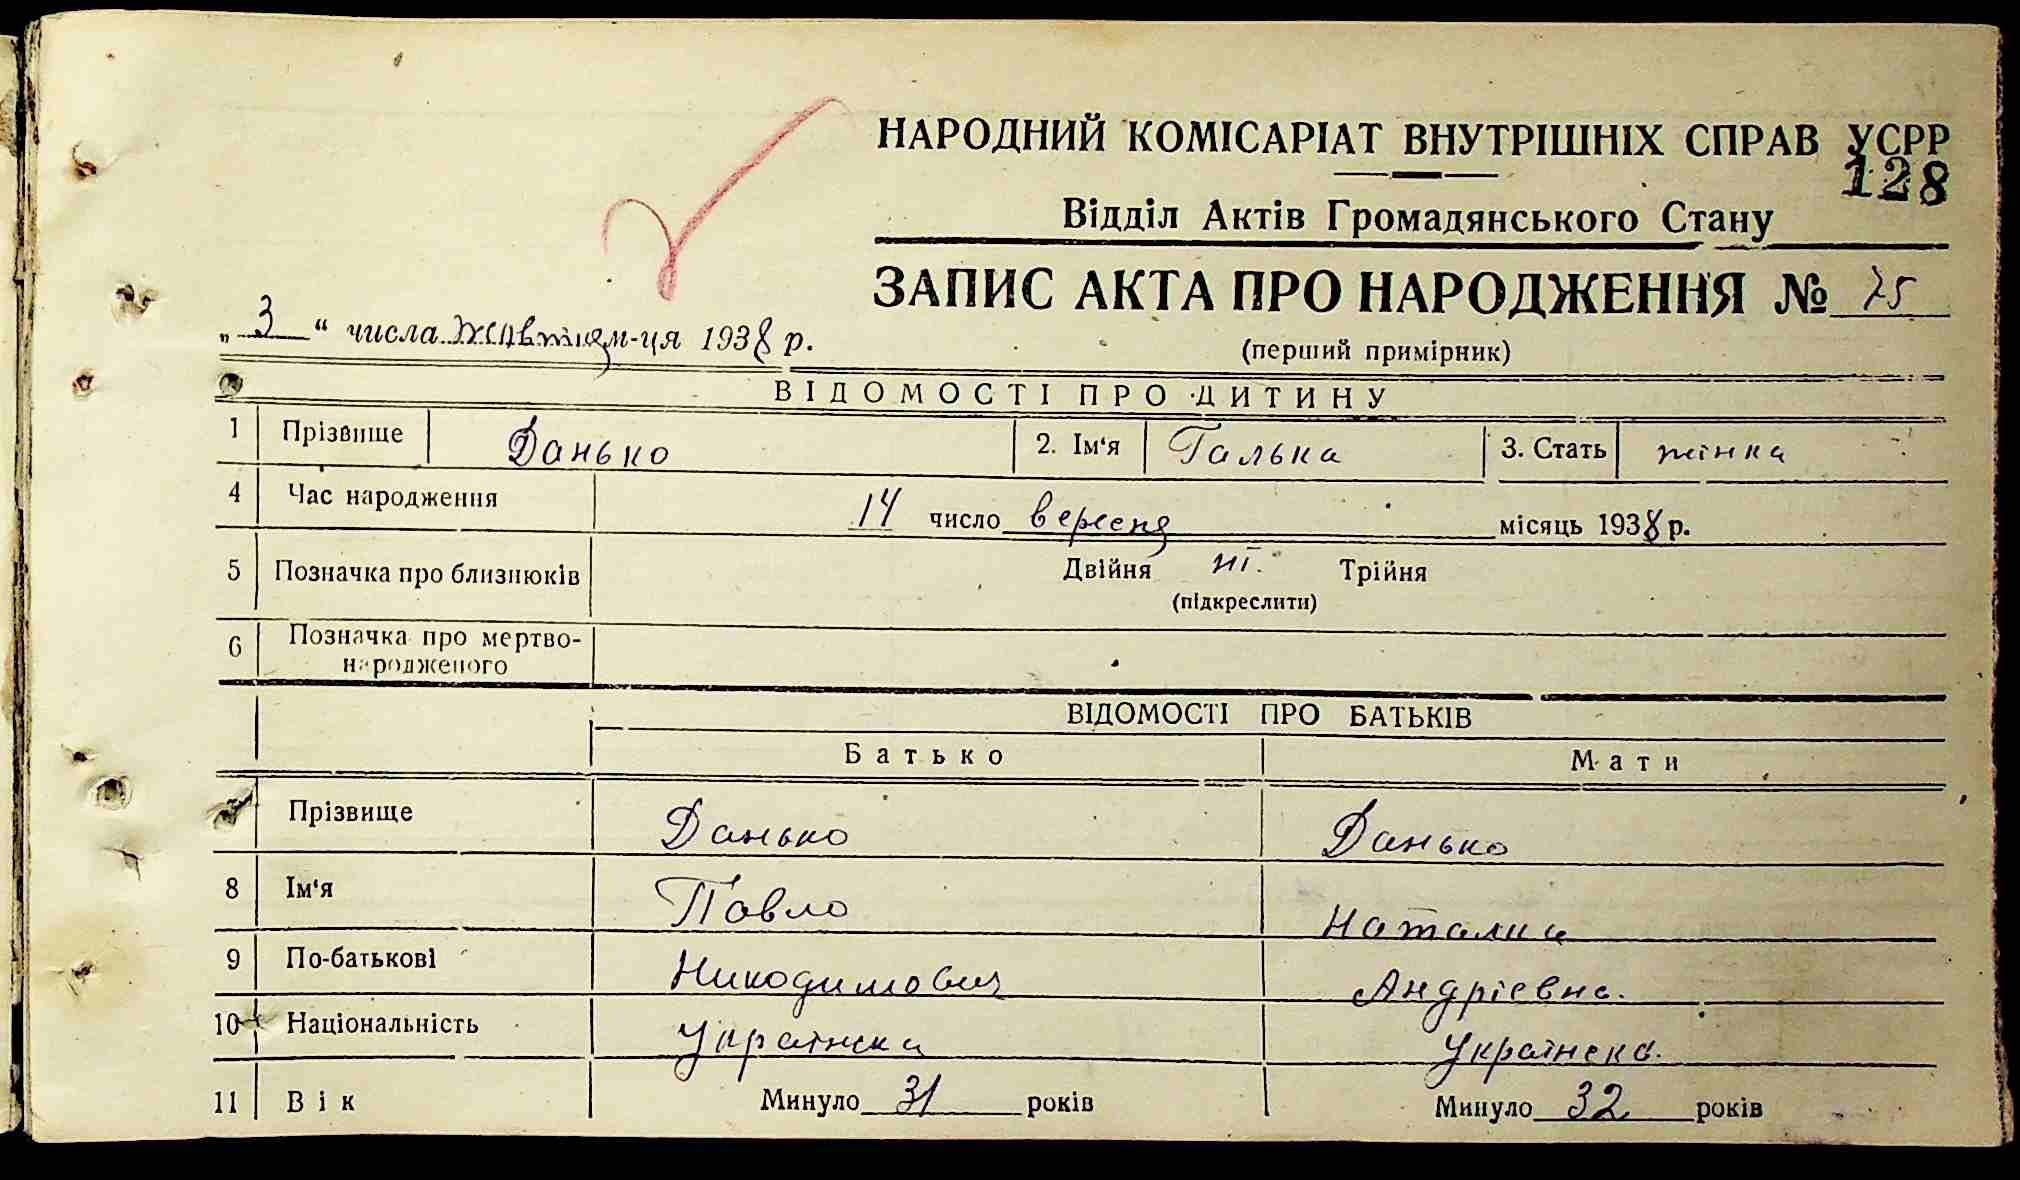 НАРОДНИЙ КОМІСАРІАТ ВНУТРІШНІХ СПРАВ УСРР
128
Відділ Актів Громадянського Стану
ЗАПИС АКТА ПРО НАРОДЖЕННЯ № 75
„ 3 “ числа Жовтня м-ця 1938 р.
(перший примірник)
ВІДОМОСТІ ПРО ДИТИНУ
1 Прізвище Данько 2. Ім'я Галька 3. Стать жінка
4 Час народження 14 число вересня місяць 1938 р.
5 Позначка про близнюків Двійня ні. Трійня
(підкреслити)
6 Позначка про мертво-
народженого
ВІДОМОСТІ ПРО БАТЬКІВ
Батько Мати
Прізвище Данько Данько
8 Ім'я Павло Наталка
9 По-батькові Никодимович Андрієвна.
10 Національність Українська Українска.
11 Вік Минуло 31 років Минуло 32 років